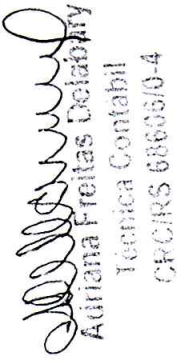 Adriana Freitas Delabary
Técnica Contábil
CRC/RS 68666/0-4